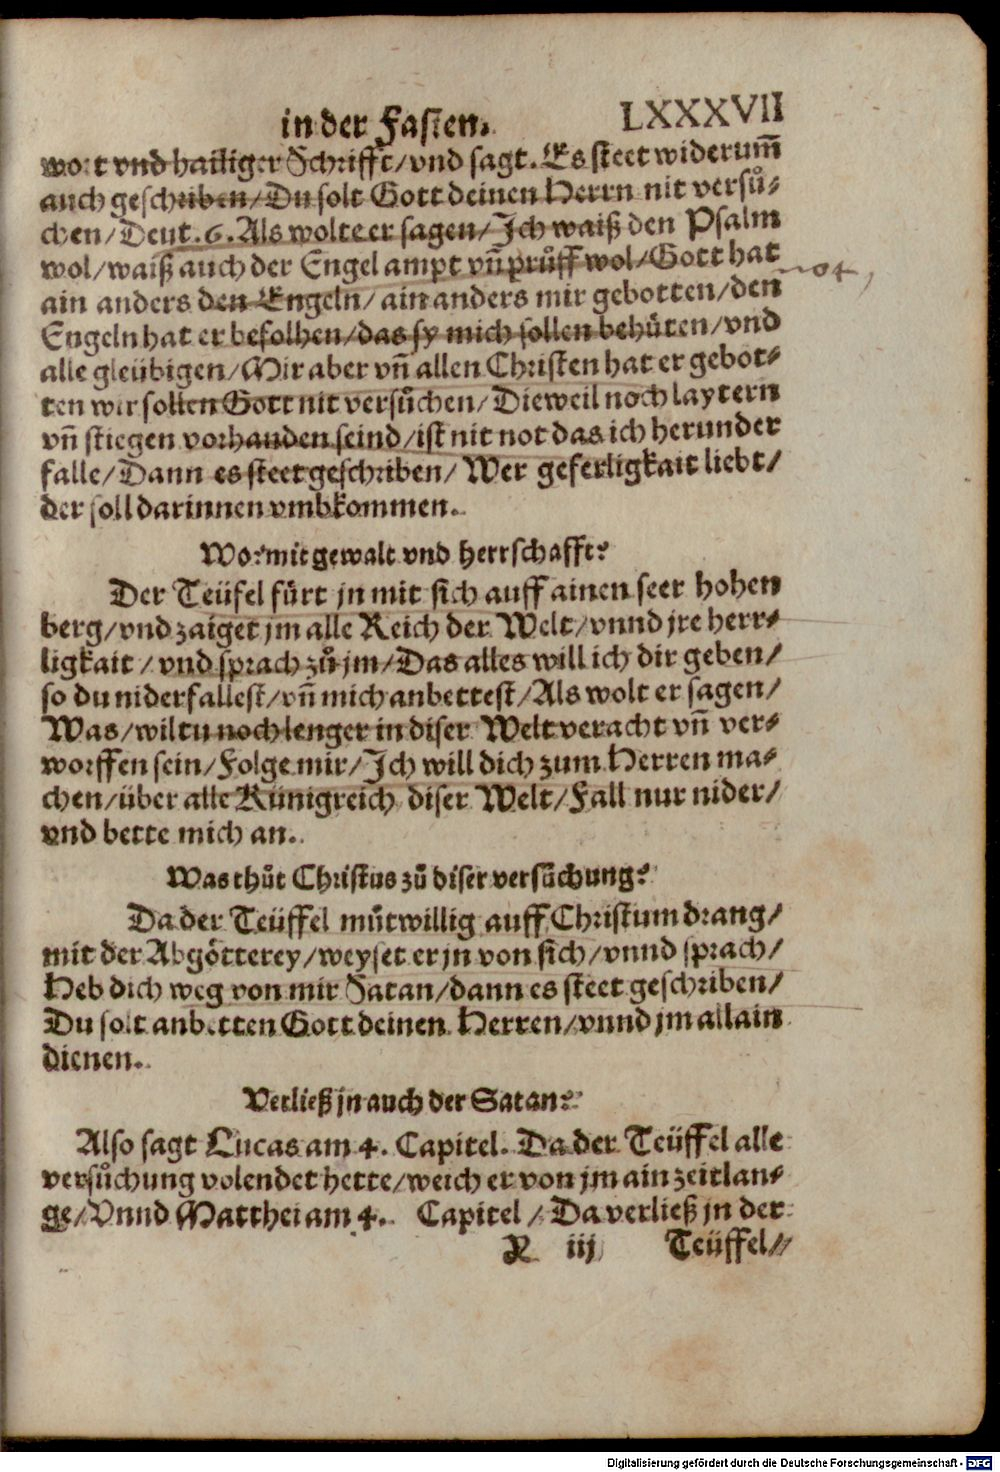 in der Fasten. LXXXVII
wort vnd hailiger Schrifft/vnd sagt. Es steet widerum̃
auch geschriben/Du solt Gott deinen Herrn nit versuͦ-
chen/Deut. 6. Als wolte er sagen/Ich waiß den Psalm
wol/waiß auch der Engel ampt vñ pruͤff wol/Gott hat
ain anders den Engeln/ain anders mir gebotten/den
Engeln hat er befolhen/das sy mich sollen behuͤten/vnd
alle gleübigen/Mir aber vñ allen Christen hat er gebot-
ten wir sollen Gott nit versuͦchen/Dieweil noch laytern
vñ stiegen vorhanden seind/ist nit not das ich herunder
falle/Dann es steet geschriben/Wer geferligkait liebt/
der soll darinnen vmbkommen.
not,
Wo:mit gewalt vnd herrschafft?
Der Teüfel fuͤrt jn mit sich auff ainen seer hohen
berg/vnd zaiget jm alle Reich der Welt/vnnd jre herr-
ligkait/vnd sprach zuͦ jm/Das alles will ich dir geben/
so du niderfallest/vñ mich anbettest/Als wolt er sagen/
Was/wiltu noch lenger in diser Welt veracht vñ ver-
worffen sein/Folge mir/Ich will dich zum Herren ma-
chen/über alle Künigreich diser Welt/Fall nur nider/
vnd bette mich an.
Was thuͦt Christus zuͦ diser versuͦchung?
Da der Teüffel muͦtwillig auff Christum drang/
mit der Abgoͤtterey/weyset er jn von sich/vnnd sprach/
Heb dich weg von mir Satan/dann es steet geschriben/
Du solt anbetten Gott deinen Herren/vnnd jm allain
dienen.
Verließ jn auch der Satan?
Also sagt Lucas am 4. Capitel. Da der Teüffel alle
versuͦchung volendet hette/weich er von jm ain zeitlan-
ge/Vnnd Matthei am 4. Capitel/Da verließ jn der
X iij Teüffel/
Digitalisierung gefördert durch die Deutsche Forschungsgemeinschaft - DFG